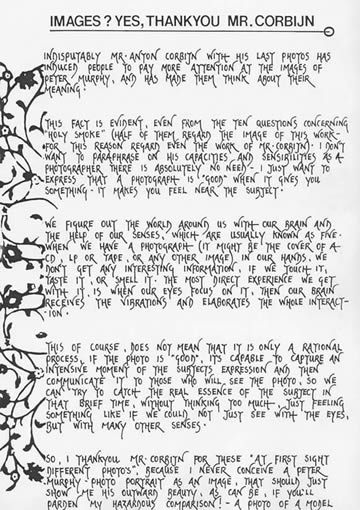 IMAGES? YES, THANKYOU MR. CORBIJN
INDISPUTABLY MR. ANTON CORBIJN WITH HIS LAST PHOTOS HAS
INDUCED PEOPLE TO PAY MORE ATTENTION AT THE IMAGES OF
PETER MURPHY, AND HAS MADE THEM THINK ABOUT THEIR
MEANING.
THIS FACT IS EVIDENT, EVEN FROM THE TEN QUESTIONS CONCERNING
"HOLY SMOKE" (HALF OF THEM REGARD THE IMAGE OF THIS WORK-
FOR THIS REASON REGARD EVEN THE WORK OF MR. CORBIJN). I DON'T
WANT TO PARAPHRASE ON HIS CAPACITIES AND SENSIBILITIES AS A
PHOTOGRAPHER THERE IS ABSOLUTELY NO NEED - I JUST WANT TO
EXPRESS THAT A PHOTOGRAPH IS "GOOD" WHEN IT GIVES YOU
SOMETHING. IT MAKES YOU FEEL NEAR THE SUBJECT.
WE FIGURE OUT THE WORLD AROUND US WITH OUR BRAIN AND
THE HELP OF OUR SENSES, WHICH ARE USUALLY KNOWN AS FIVE.
WHEN WE HAVE A PHOTOGRAPH (IT MIGHT BE THE COVER OF A
CD, LP OR TAPE, OR ANY OTHER IMAGE) IN OUR HANDS, WE
DON'T GET ANY INTERESTING INFORMATION, IF WE TOUCH IT,
TASTE IT, OR SMELL IT. THE MOST DIRECT EXPERIENCE WE GET
WITH IT, IS WHEN OUR EYES FOCUS ON IT, THEN OUR BRAIN
RECEIVES THE VIBRATIONS AND ELABORATES THE WHOLE INTERACT-
-ION.
THIS OF COURSE, DOES NOT MEAN THAT IT IS ONLY A RATIONAL
PROCESS, IF THE PHOTO IS "GOOD", ITS CAPABLE TO CAPTURE AN
INTENSIVE MOMENT OF THE SUBJECTS EXPRESSION AND THEN
COMMUNICATE IT TO THOSE WHO WILL SEE THE PHOTO, SO WE
CAN TRY TO CATCH THE REAL ESSENCE OF THE SUBJECT IN
THAT BRIEF TIME, WITHOUT THINKING TOO MUCH, JUST FEELING
SOMETHING LIKE IF WE COULD NOT JUST SEE WITH THE EYES,
BUT WITH MANY OTHER SENSES.
SO, I THANKYOU MR. CORBIJN FOR THESE "AT FIRST SIGHT
DIFFERENT PHOTO'S", BECAUSE I NEVER CONCEIVE A PETER
MURPHY PHOTO PORTRAIT AS AN IMAGE, THAT SHOULD JUST
SHOW ME HIS OUTWARD BEAUTY, AS CAN BE, IF YOU'LL
PARDEN MY HAZARDOUS COMPARISON! - A PHOTO OF A MODEL